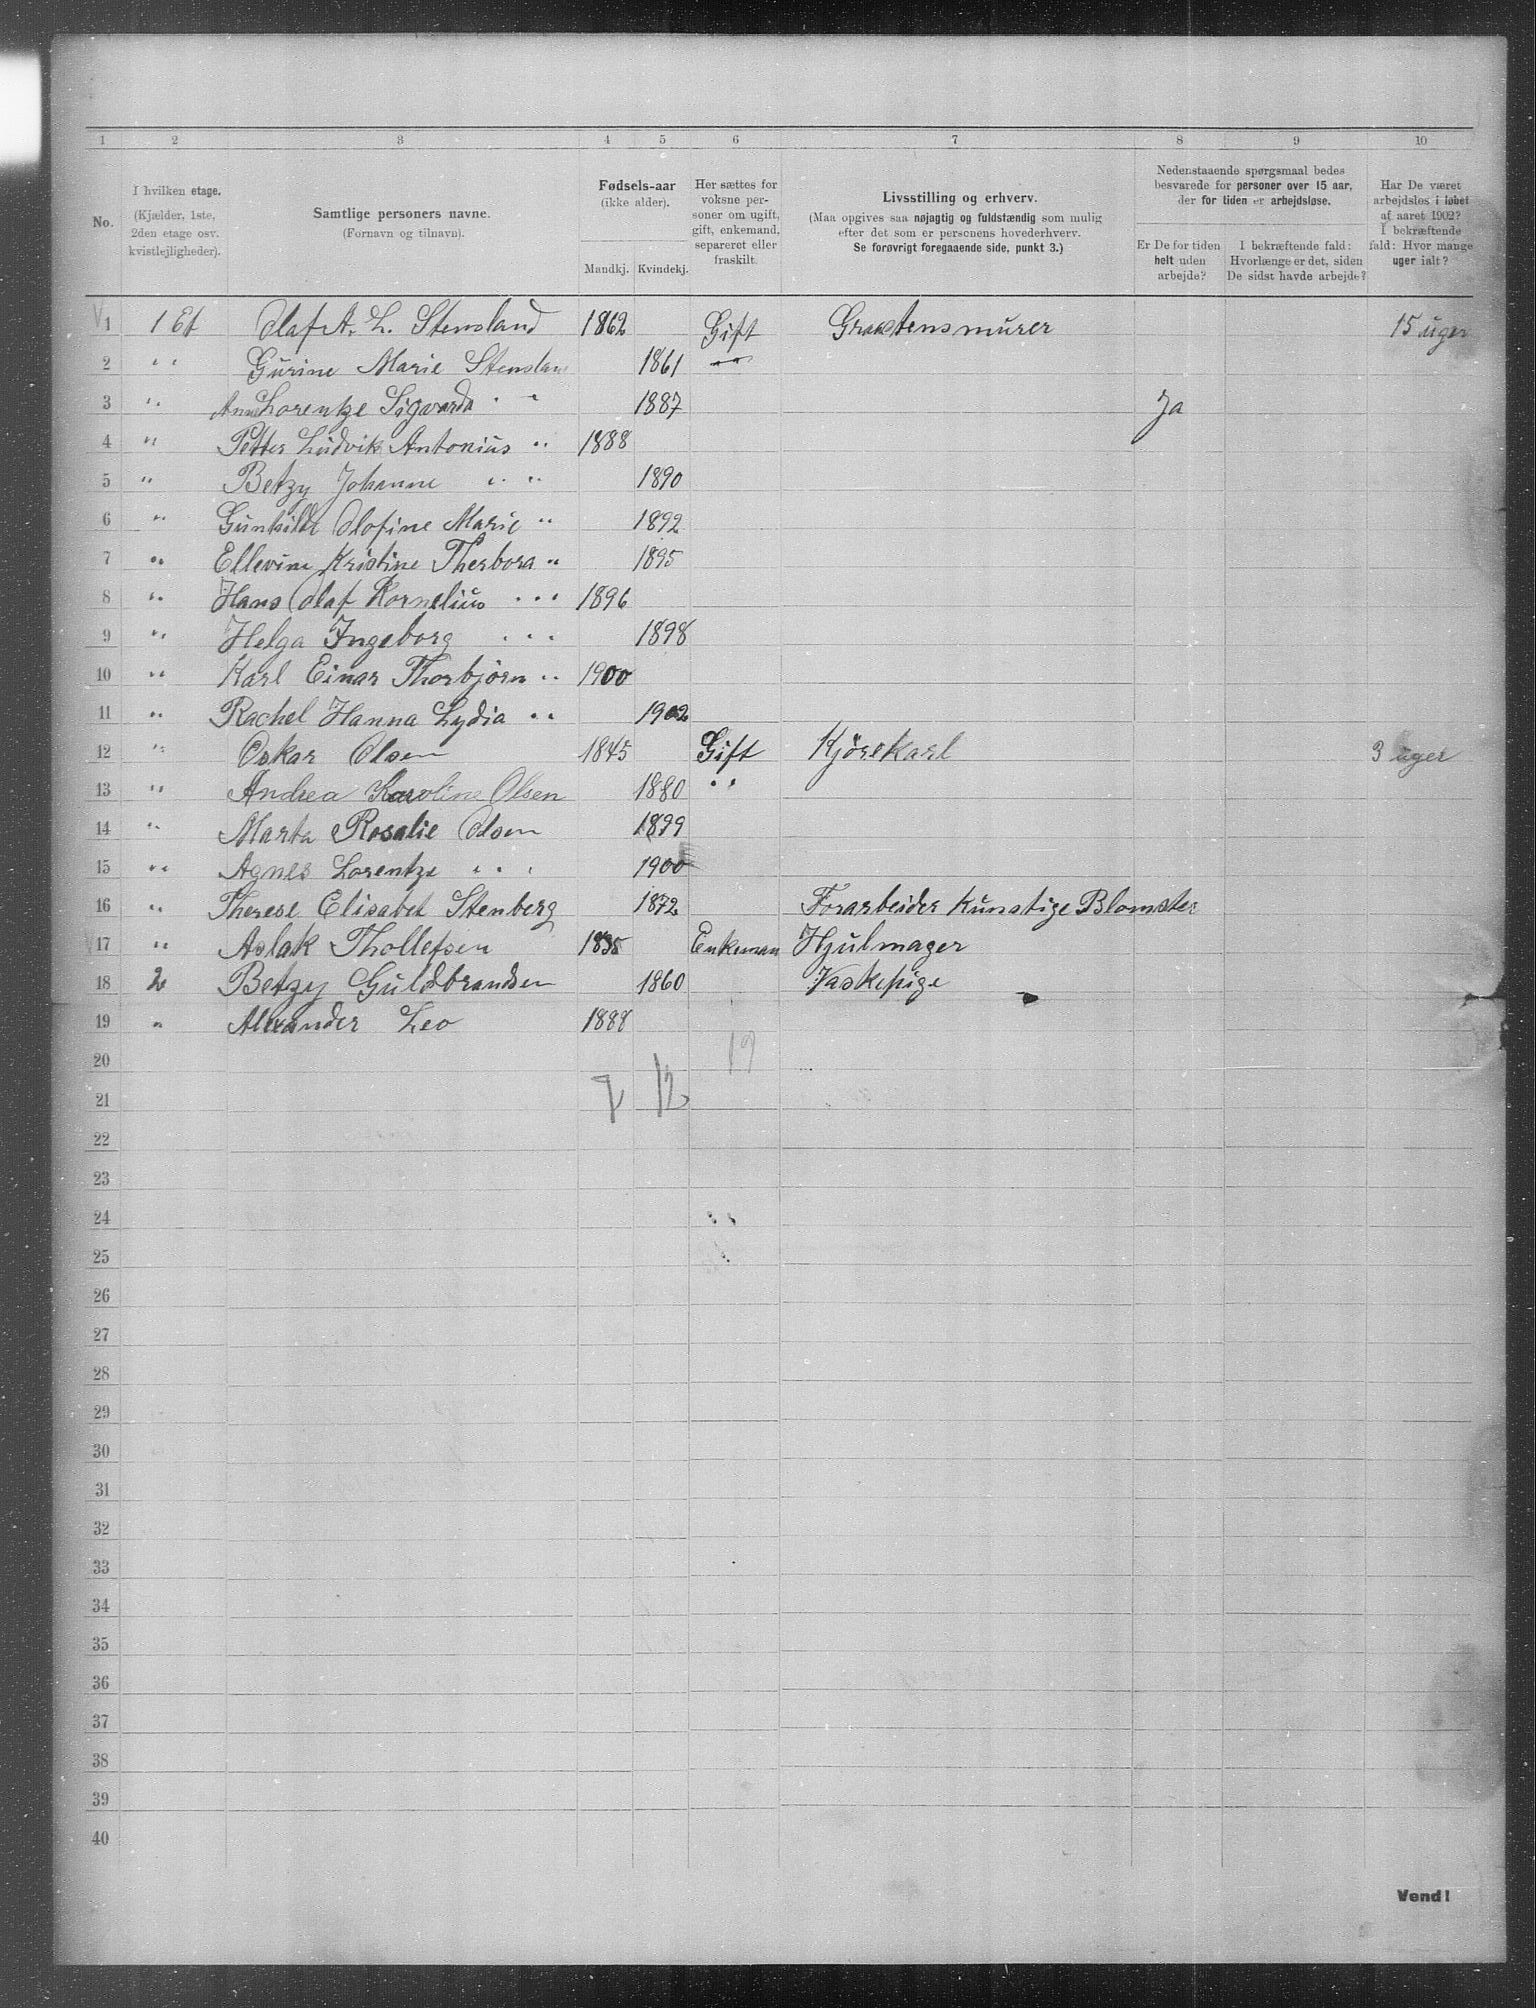 1 2 3 4 5 6 7 8 9 10
No.
I hvilken etage.
(Kjælder, 1ste,
2den etage osv.
kvistlejligheder).
Samtlige personers navne.
(Fornavn og tilnavn).
Fødsels-aar
(ikke alder).
Mandkj. Kvindekj.
Her sættes for
voksne per-
soner om ugift,
gift, enkemand,
separeret eller
fraskilt.
Livsstilling og erhverv.
(Maa opgives saa nøjagtig og fuldstændig som mulig
efter det som er personens hovederhverv.
Se forøvrigt foregaaende side, punkt 3.)
Nedenstaaende spørgsmaal bedes
besvarede for personer over 15 aar,
der for tiden er arbejdsløse.
Er De for tiden
helt uden
arbejde?
I bekræftende fald:
Hvorlænge er det, siden
De sidst havde arbejde?
Har De været
arbejdsløs i løbet
af aaret 1902?
I bekræftende
fald: Hvor mange
uger ialt?
1 1 Et Olaf A. L. Stensland 1862 Gift Graastensmurer 15 uger
2 " Gurine Marie Stensland 1861 "
3 " Anna Lorentze Sigvarda " 1887 Ja
4 " Petter Ludvik Antonius " 1888
5 " Betzy Johanne " " 1890
6 " Gunhilde Olofine Marie " 1892
7 " Ellevine Kristine Therbora " 1895
8 " Hans Olaf Kornelius " 1896
9 " Helga Ingeborg " 1898
10 " Karl Einar Thorbjörn " 1900
11 " Rachel Hanna Lydia " 1902
12 " Oskar Olsen 1845 Gift Kjörekarl 3 uger
13 " Andrea Karoline Olsen 1880 "
14 " Marta Rosalie Olsen 1899
15 " Agnes Lorentze " " 1900
16 " Therese Elisabet Stenberg 1872 Forarbeider Kunstige Blomster
17 " Aslak Thollefsen 1835 Enkeman Hjulmager
18 2 Betzy Guldbrandsen 1860 Vaskepige
19 " Alexander Leo 1888
20 19
21 7 12
22
23
24
25
26
27
28
29
30
31
32
33
34
35
36
37
38
39
40
Vend!